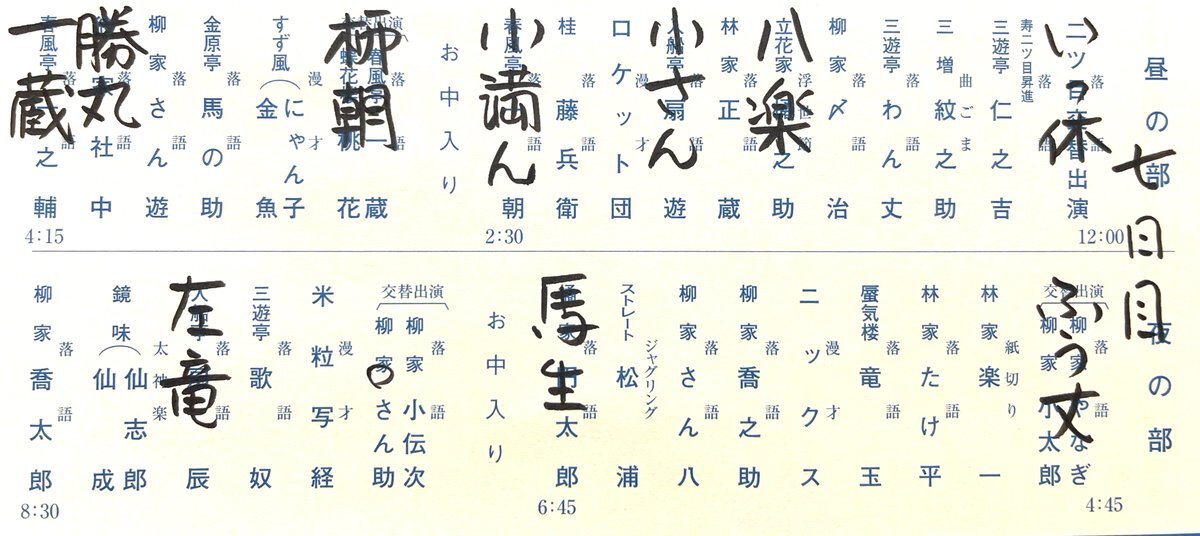 昼の部
七日目
12:00
二ツ目交替出演
い休
寿二ツ目昇進
三遊亭 仁之吉 落語
三増 紋之助 曲ごま
三遊亭 わん丈 落語
柳家 〆治 落語
立花家 之助
八楽
林家 正蔵 落語
入船亭 扇遊 落語
小さん
ロケット団 漫才
桂 藤兵衛 落語
春風亭 朝 落語
小満ん
2:30
お中入り
交替出演
春風亭 一蔵 落語
蝶花楼 桃花
柳朝
すず風 にゃん子 金魚 漫才
金原亭 馬の助 落語
柳家 さん遊 落語
社中
勝丸
春風亭 一之輔 落語
一蔵
4:15
夜の部
4:45
交替出演
柳家 やなぎ 落語
柳家 小太郎
ふう丈
林家 楽一 紙切り
林家 たけ平 落語
蜃気楼 竜玉 落語
ニックス 漫才
柳家 喬之助 落語
柳家 さん八 落語
ストレート 松浦 ジャグリング
橘家 圓太郎 落語
馬生
6:45
お中入り
交替出演
柳家 小伝次 落語
柳家 さん助
米粒写経 漫才
三遊亭 歌奴 落語
入船亭 辰 落語
左竜
鏡味 仙志郎 仙成 太神楽
柳家 喬太郎 落語
8:30